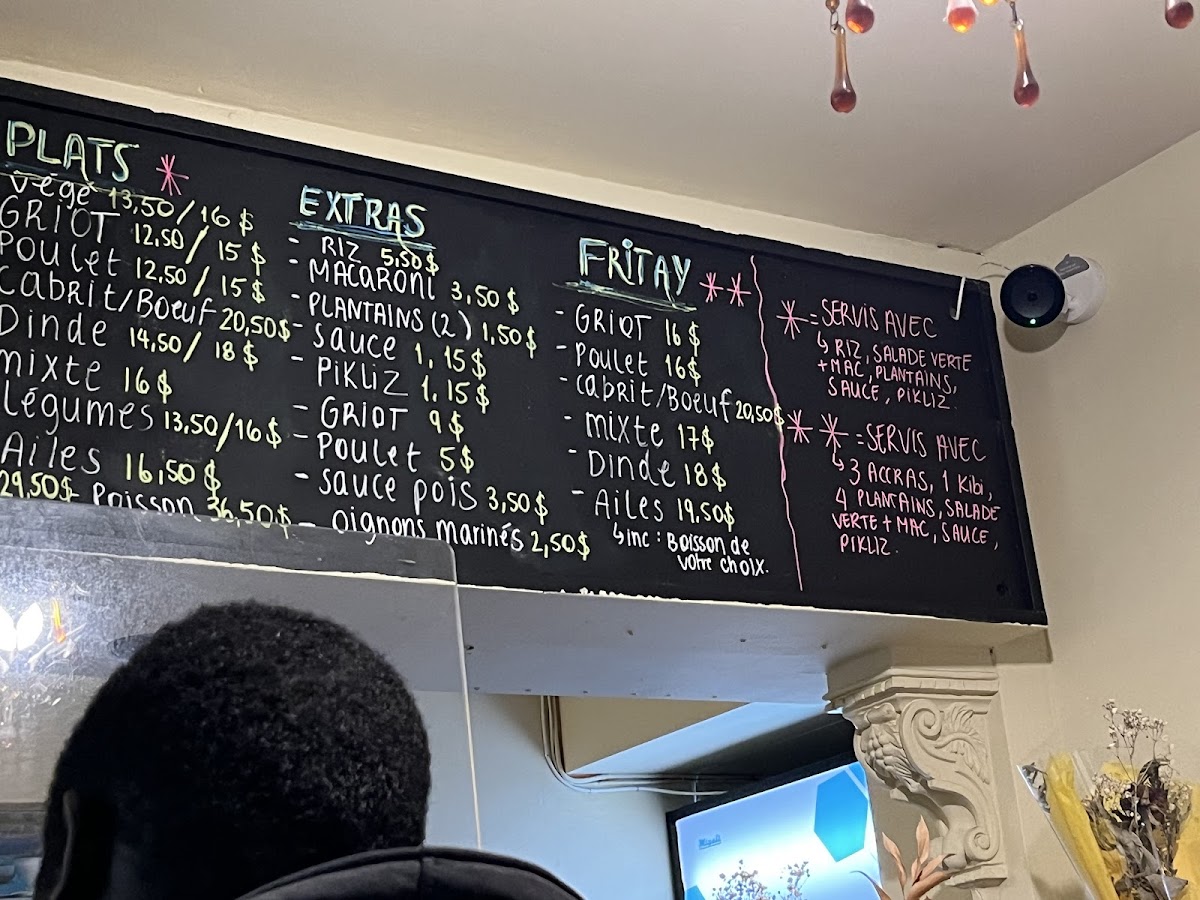 PLATS *
végé 13,50/16$
GRIOT 12,50/15$
Poulet 12,50/15$
cabrit/Boeuf 20,50$
Dinde 14,50/18$
mixte 16$
légumes 13,50/16$
Ailes 16,50$
29,50$- Poisson 36,50$
EXTRAS
- RIZ 5,50$
- MACARONI 3,50$
- PLANTAINS (2) 1,50$
- sauce 1,15$
- PiKLiZ 1,15$
- GRIOT 9$
- Poulet 5$
- sauce pois 3,50$
- oignons marinés 2,50$
FRiTAY **
- GRIOT 16$
- Poulet 16$
- cabrit/Boeuf 20,50$
- mixte 17$
- Dinde 18$
- Ailes 19,50$
↳inc : Boisson de
votre choix.
* = SERVIS AVEC
↳ RIZ, SALADE VERTE
+MAC, PLANTAINS,
SAUCE, PIKLIZ.
** = SERVIS AVEC
↳ 3 ACCRAS, 1 Kibi,
4 PLANTAINS, SALADE
VERTE + MAC, SAUCE,
PIKLIZ.